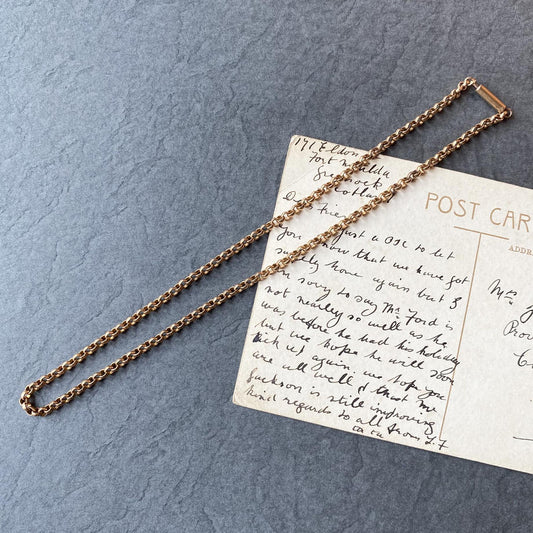 171 Eldon
Fort Matilda
Greenock
Scotland
Dear Friend
just a P.C. to let
you know that we have got
safely home again but I
am sorry to say Mr Ford is
not nearly so well as he
was before he had his holiday
but we hope he will soon
pick up again we hope you
are all well & that Mr
Jackson is still improving
kind regards to all from L.F
ta ta
POST CAR
ADDR
Mrs
Pro